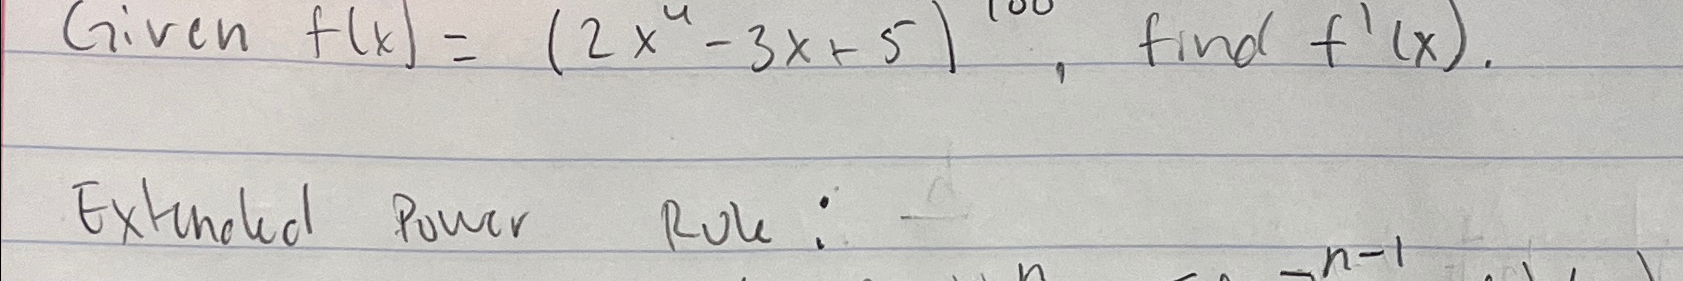 Given f(x) = (2x⁴ - 3x + 5)¹⁰⁰, find f'(x).
Extended Power Rule:
n n-1